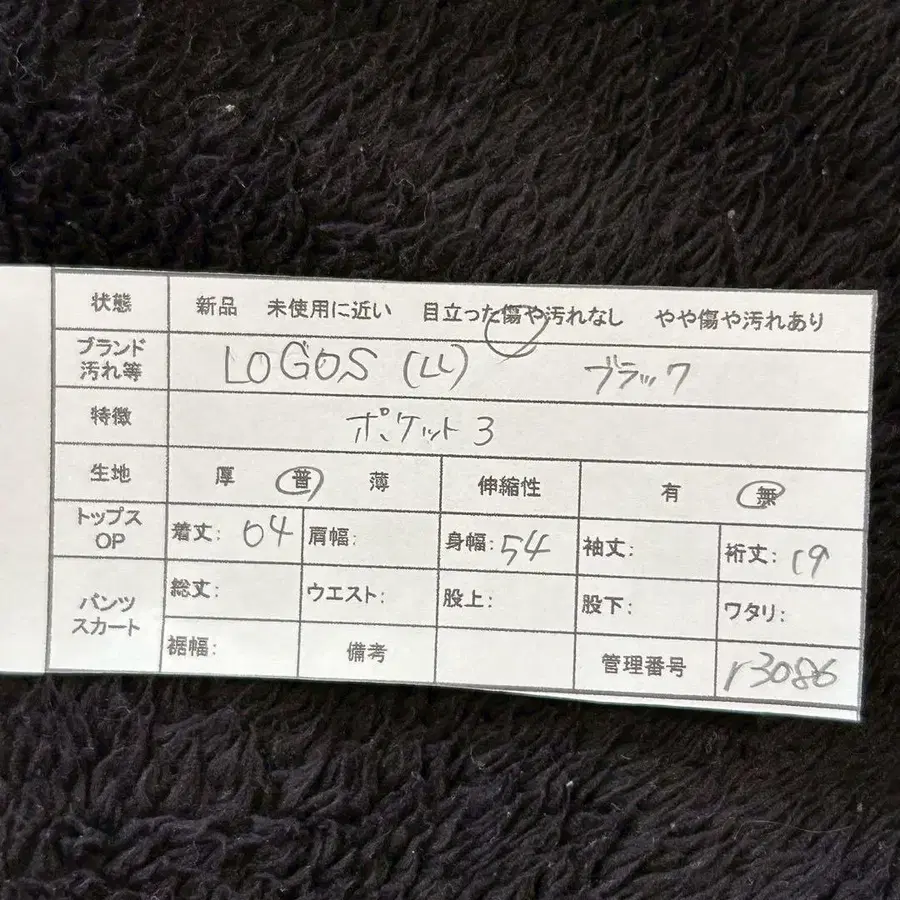 状態 新品 未使用に近い 目立った傷や汚れなし やや傷や汚れあり
ブランド
汚れ等 LOGOS (LL) ブラック
特徴 ポケット3
生地 厚 普 薄 伸縮性 有 無
トップス
OP 着丈: 64 肩幅: 身幅: 54 袖丈: 裄丈: 19
パンツ
スカート 総丈: ウエスト: 股上: 股下: ワタリ:
裾幅: 備考 管理番号 r3086